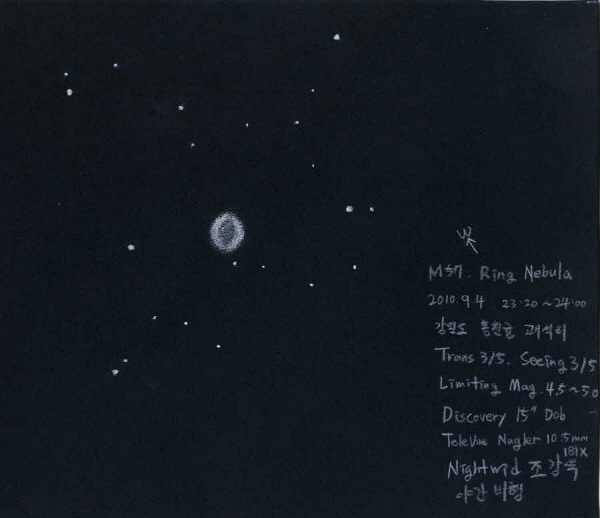 W
M57. Ring Nebula
2010. 9 4 23:20 ~ 24:00
Trans 3/5. Seeing 3/5
Limiting Mag 4.5 ~ 5.0
Discovery 15" Dob
TeleVue Nagler 10.5mm
181X
Nightwid 조강욱
야간 비행